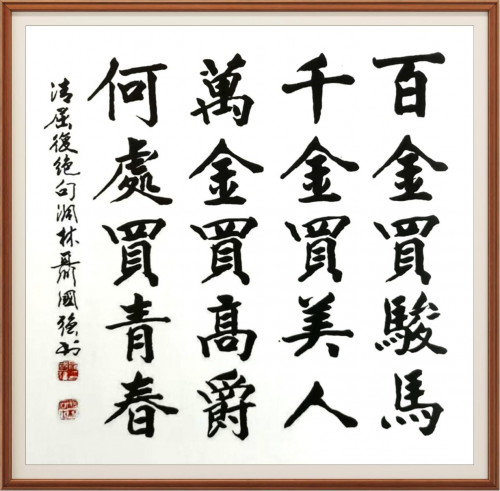 百金買駿馬
千金買美人
萬金買高爵
何處買青春
清屈復絕句 洞林聶國強书